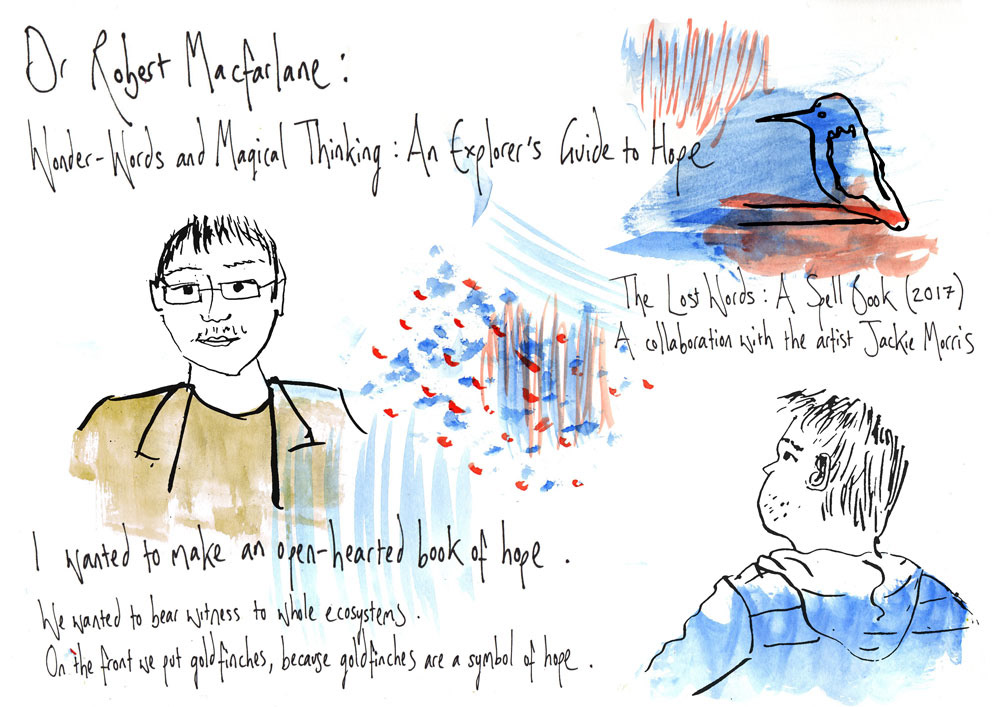 Dr Robert Macfarlane:
Wonder-Words and Magical Thinking: An Explorer's Guide to Hope
The Lost Words: A Spell Book (2017)
A collaboration with the artist Jackie Morris
I wanted to make an open-hearted book of hope.
We wanted to bear witness to whole ecosystems.
On the front we put goldfinches, because goldfinches are a symbol of hope.